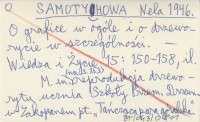 SAMOTYCHOWA Nela 1946.
O grafice w ogóle i o drzewo-
rycie w szczególności. -
Wiedza i Życie, 15: 150-158, il.
M. in. reprodukcja drzewo-
rytu ucznia Szkoły Przem. Drzewn.
w Zakopanem pt. „Tańcząca para góralska"